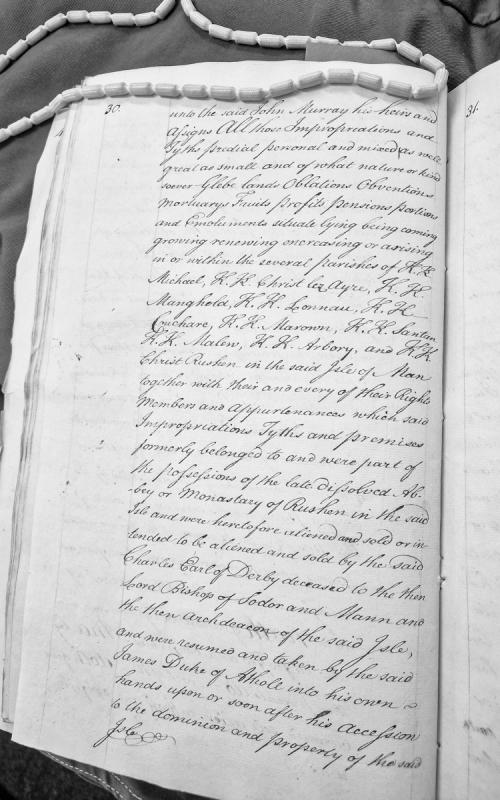 30.
31.
unto the said John Murray his heirs and
Assigns All those Impropriations and
Tyths predial personal and mixed as well
great as small and of what nature or kind
soever Glebe lands Oblations Obventions
Mortuarys Fruits profits pensions portions
and Emoluments situate lying being coming
growing renewing encreasing or arising
in or within the several parishes of K.K.
Michael, K.K. Christ lez Ayre, K.K.
Manghold, K.K. Lonnau, K.K.
Conchare, K.K. Marown, K.K. Santan
K.K. Malew, K.K. Arbory, and K.K
Christ Rushen in the said Isle of Man
together with their and every of their Rights
Members and Appurtenances which said
Impropriations Tyths and premises
formerly belonged to and were part of
the possessions of the late dissolved Ab-
bey or Monastary of Rushen in the said
Isle and were heretofore aliened and sold or in
tended to be aliened and sold by the said
Charles Earl of Derby deceased to the then
Lord Bishop of Sodor and Mann and
the then Archdeacon of the said Isle,
and were resumed and taken by the said
James Duke of Atholl into his own
hands upon or soon after his Accession
to the dominion and property of the said
Isle